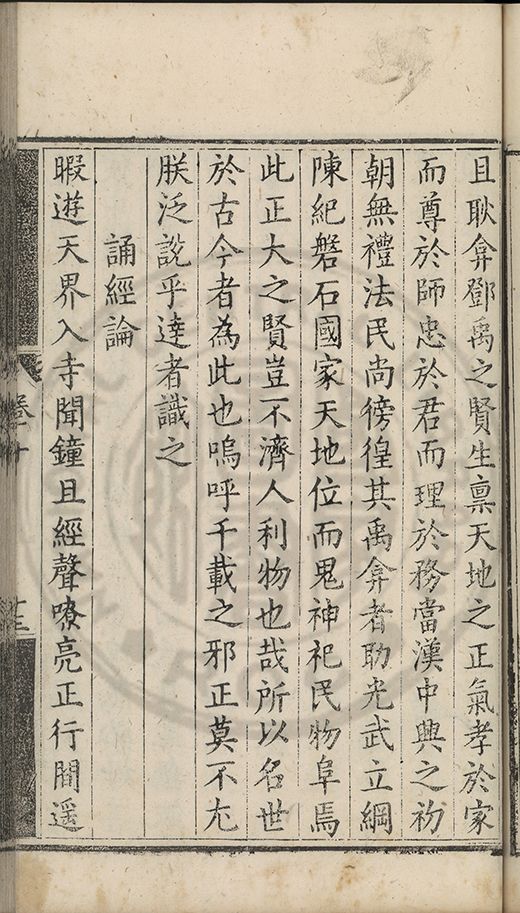 且耿弇鄧禹之賢生禀天地之正氣孝於家
而尊於師忠於君而理於務當漢中興之初
朝無禮法民尚徬徨其禹弇者助光武立綱
陳紀磐石國家天地位而鬼神祀民物阜焉
此正大之賢豈不濟人利物也哉所以名世
於古今者為此也嗚呼千載之邪正莫不尤
朕泛說乎達者識之
誦經論
暇遊天界入寺聞鐘且經聲嘹亮正行間遥
卷十
十三